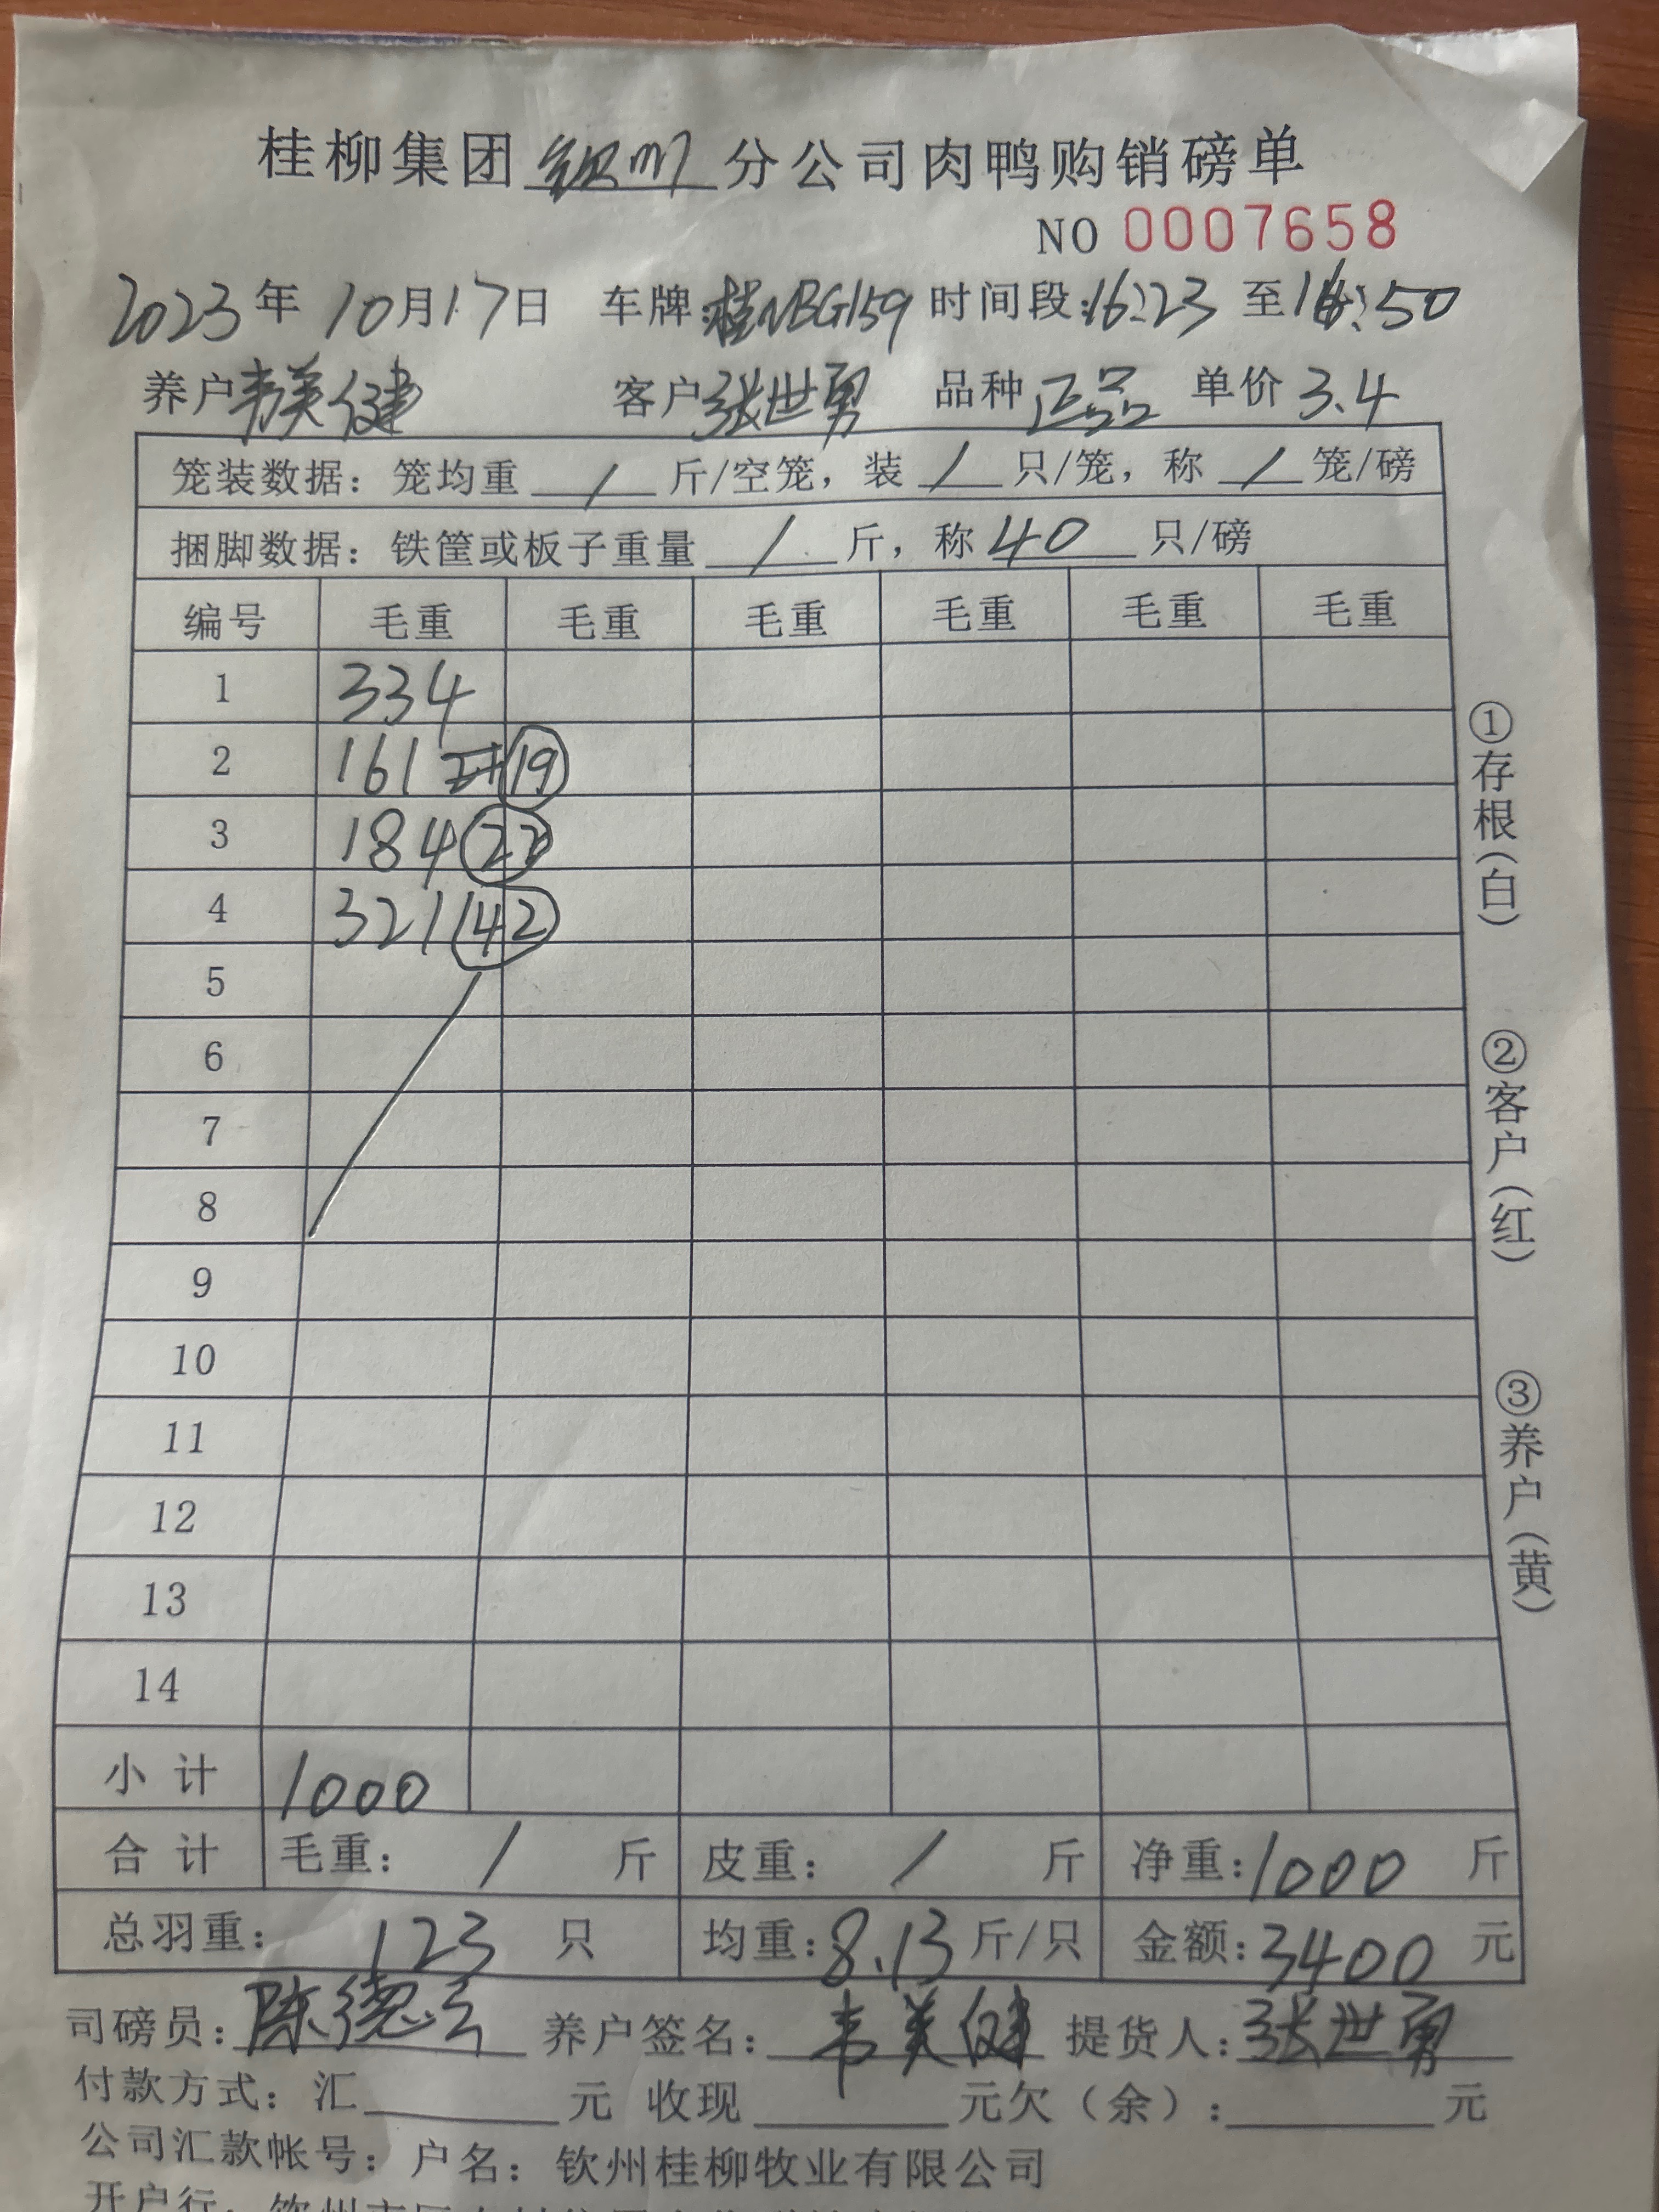 桂柳集团钦州分公司肉鸭购销磅单
NO 0007658
2023年10月17日 车牌:桂NBG159 时间段:16:23 至16:50
养户韦美健 客户张世勇 品种正品 单价3.4
笼装数据：笼均重 / 斤/空笼，装 / 只/笼，称 / 笼/磅
捆脚数据：铁筐或板子重量 / 斤，称 40 只/磅
编号 毛重 毛重 毛重 毛重 毛重 毛重
1 334
2 161 19
3 184 22
4 321 42
5
6
7
8
9
10
11
12
13
14
小计 1000
合计 毛重： / 斤 皮重： / 斤 净重:1000 斤
总羽重： 123 只 均重:8.13斤/只 金额:3400 元
①存根(白)
②客户(红)
③养户(黄)
司磅员：陈德云 养户签名：韦美健 提货人:张世勇
付款方式：汇 元 收现 元欠（余）: 元
公司汇款帐号：户名：钦州桂柳牧业有限公司
开户行：